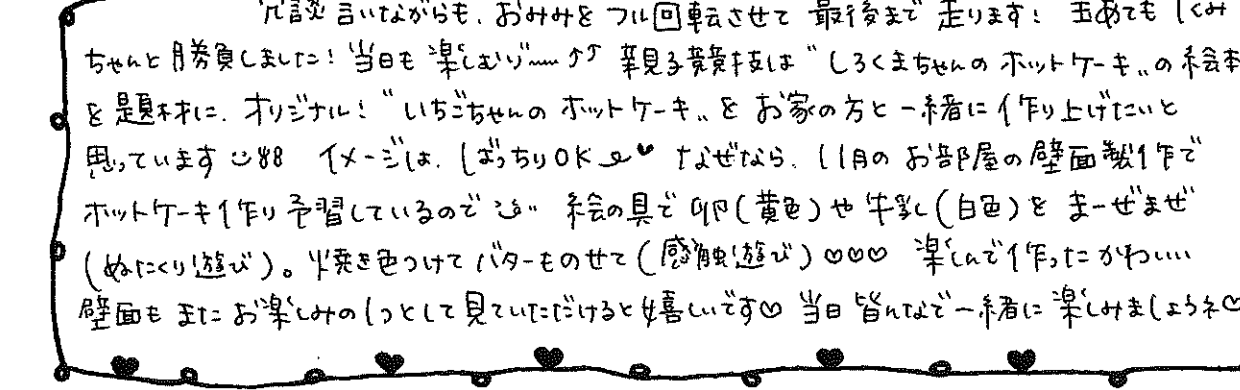 冗談言いながらも、おみみをフル回転させて最後まで走ります! 玉めても しくみ
ちゃんと勝負しました!当日も楽しむゾ〜〜⤴⤴ 親子競技は“しろくまちゃんのホットケーキ„の絵本
を題材に、オリジナル!“いちごちゃんのホットケーキ„をお家の方と一緒に作り上げたいと
思っています イメージは、ばっちりOK♥ なぜなら、11月のお部屋の壁面製作で
ホットケーキ作り予習しているので 絵の具で卵(黄色)や牛乳(白色)をまーぜまぜ
(ぬたくり遊び)。焼き色つけてバターものせて(感触遊び)♡♡♡ 楽しんで作ったかわいい
壁面もまたお楽しみの1つとして見ていただけると嬉しいです♡ 当日皆んなで一緒に楽しみましょうネ♡